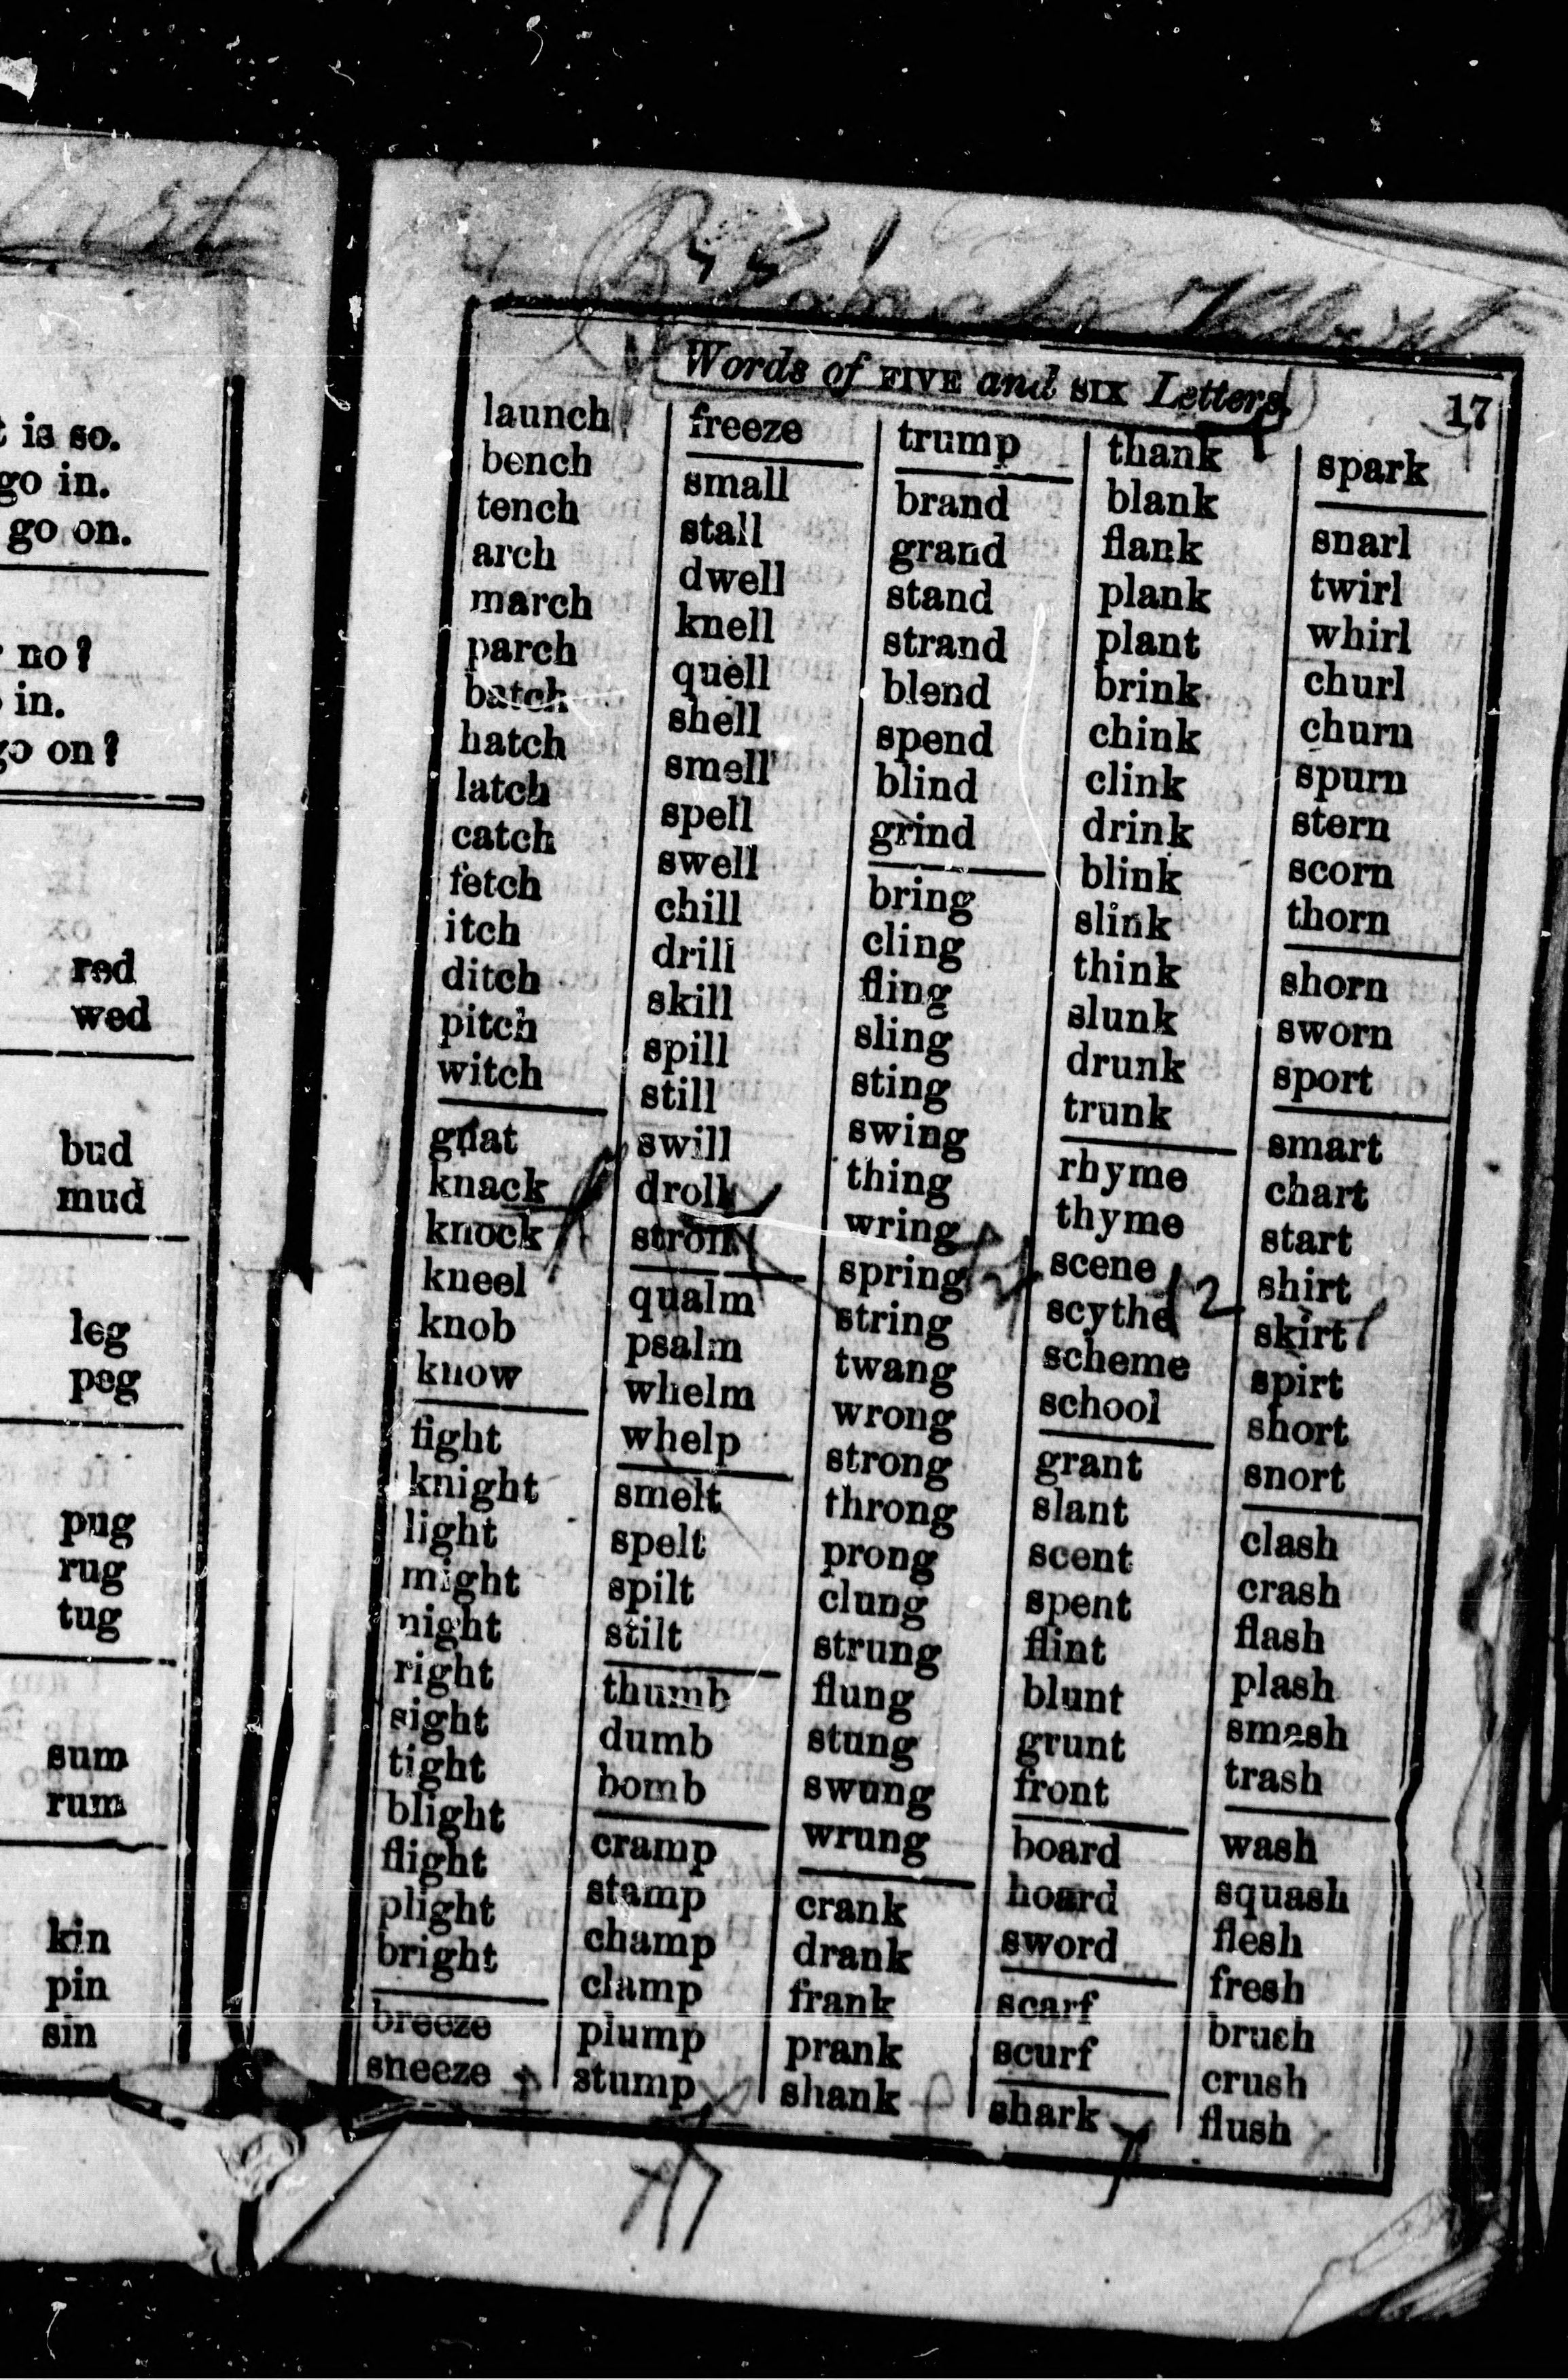 t is so.
go in.
go on.
no?
in.
go on?
red
wed
bud
mud
leg
peg
pug
rug
tug
sum
rum
kin
pin
sin
Words of FIVE and SIX Letters. 17
launch
bench
tench
arch
march
parch
batch
hatch
latch
catch
fetch
itch
ditch
pitch
witch
gnat
knack
knock
kneel
knob
know
fight
knight
light
might
night
right
sight
tight
blight
flight
plight
bright
breeze
sneeze
freeze
small
stall
dwell
knell
quell
shell
smell
spell
swell
chill
drill
skill
spill
still
swill
droll
stroll
qualm
psalm
whelm
whelp
smelt
spelt
spilt
stilt
thumb
dumb
bomb
cramp
stamp
champ
clamp
plump
stump
trump
brand
grand
stand
strand
blend
spend
blind
grind
bring
cling
fling
sling
sting
swing
thing
wring
spring
string
twang
wrong
strong
throng
prong
clung
strung
flung
stung
swung
wrung
crank
drank
frank
prank
shank
thank
blank
flank
plank
plant
brink
chink
clink
drink
blink
slink
think
slunk
drunk
trunk
rhyme
thyme
scene
scythe
scheme
school
grant
slant
scent
spent
flint
blunt
grunt
front
board
hoard
sword
scarf
scurf
shark
spark
snarl
twirl
whirl
churl
churn
spurn
stern
scorn
thorn
shorn
sworn
sport
smart
chart
start
shirt
skirt
spirt
short
snort
clash
crash
flash
plash
smash
trash
wash
squash
flesh
fresh
brush
crush
flush